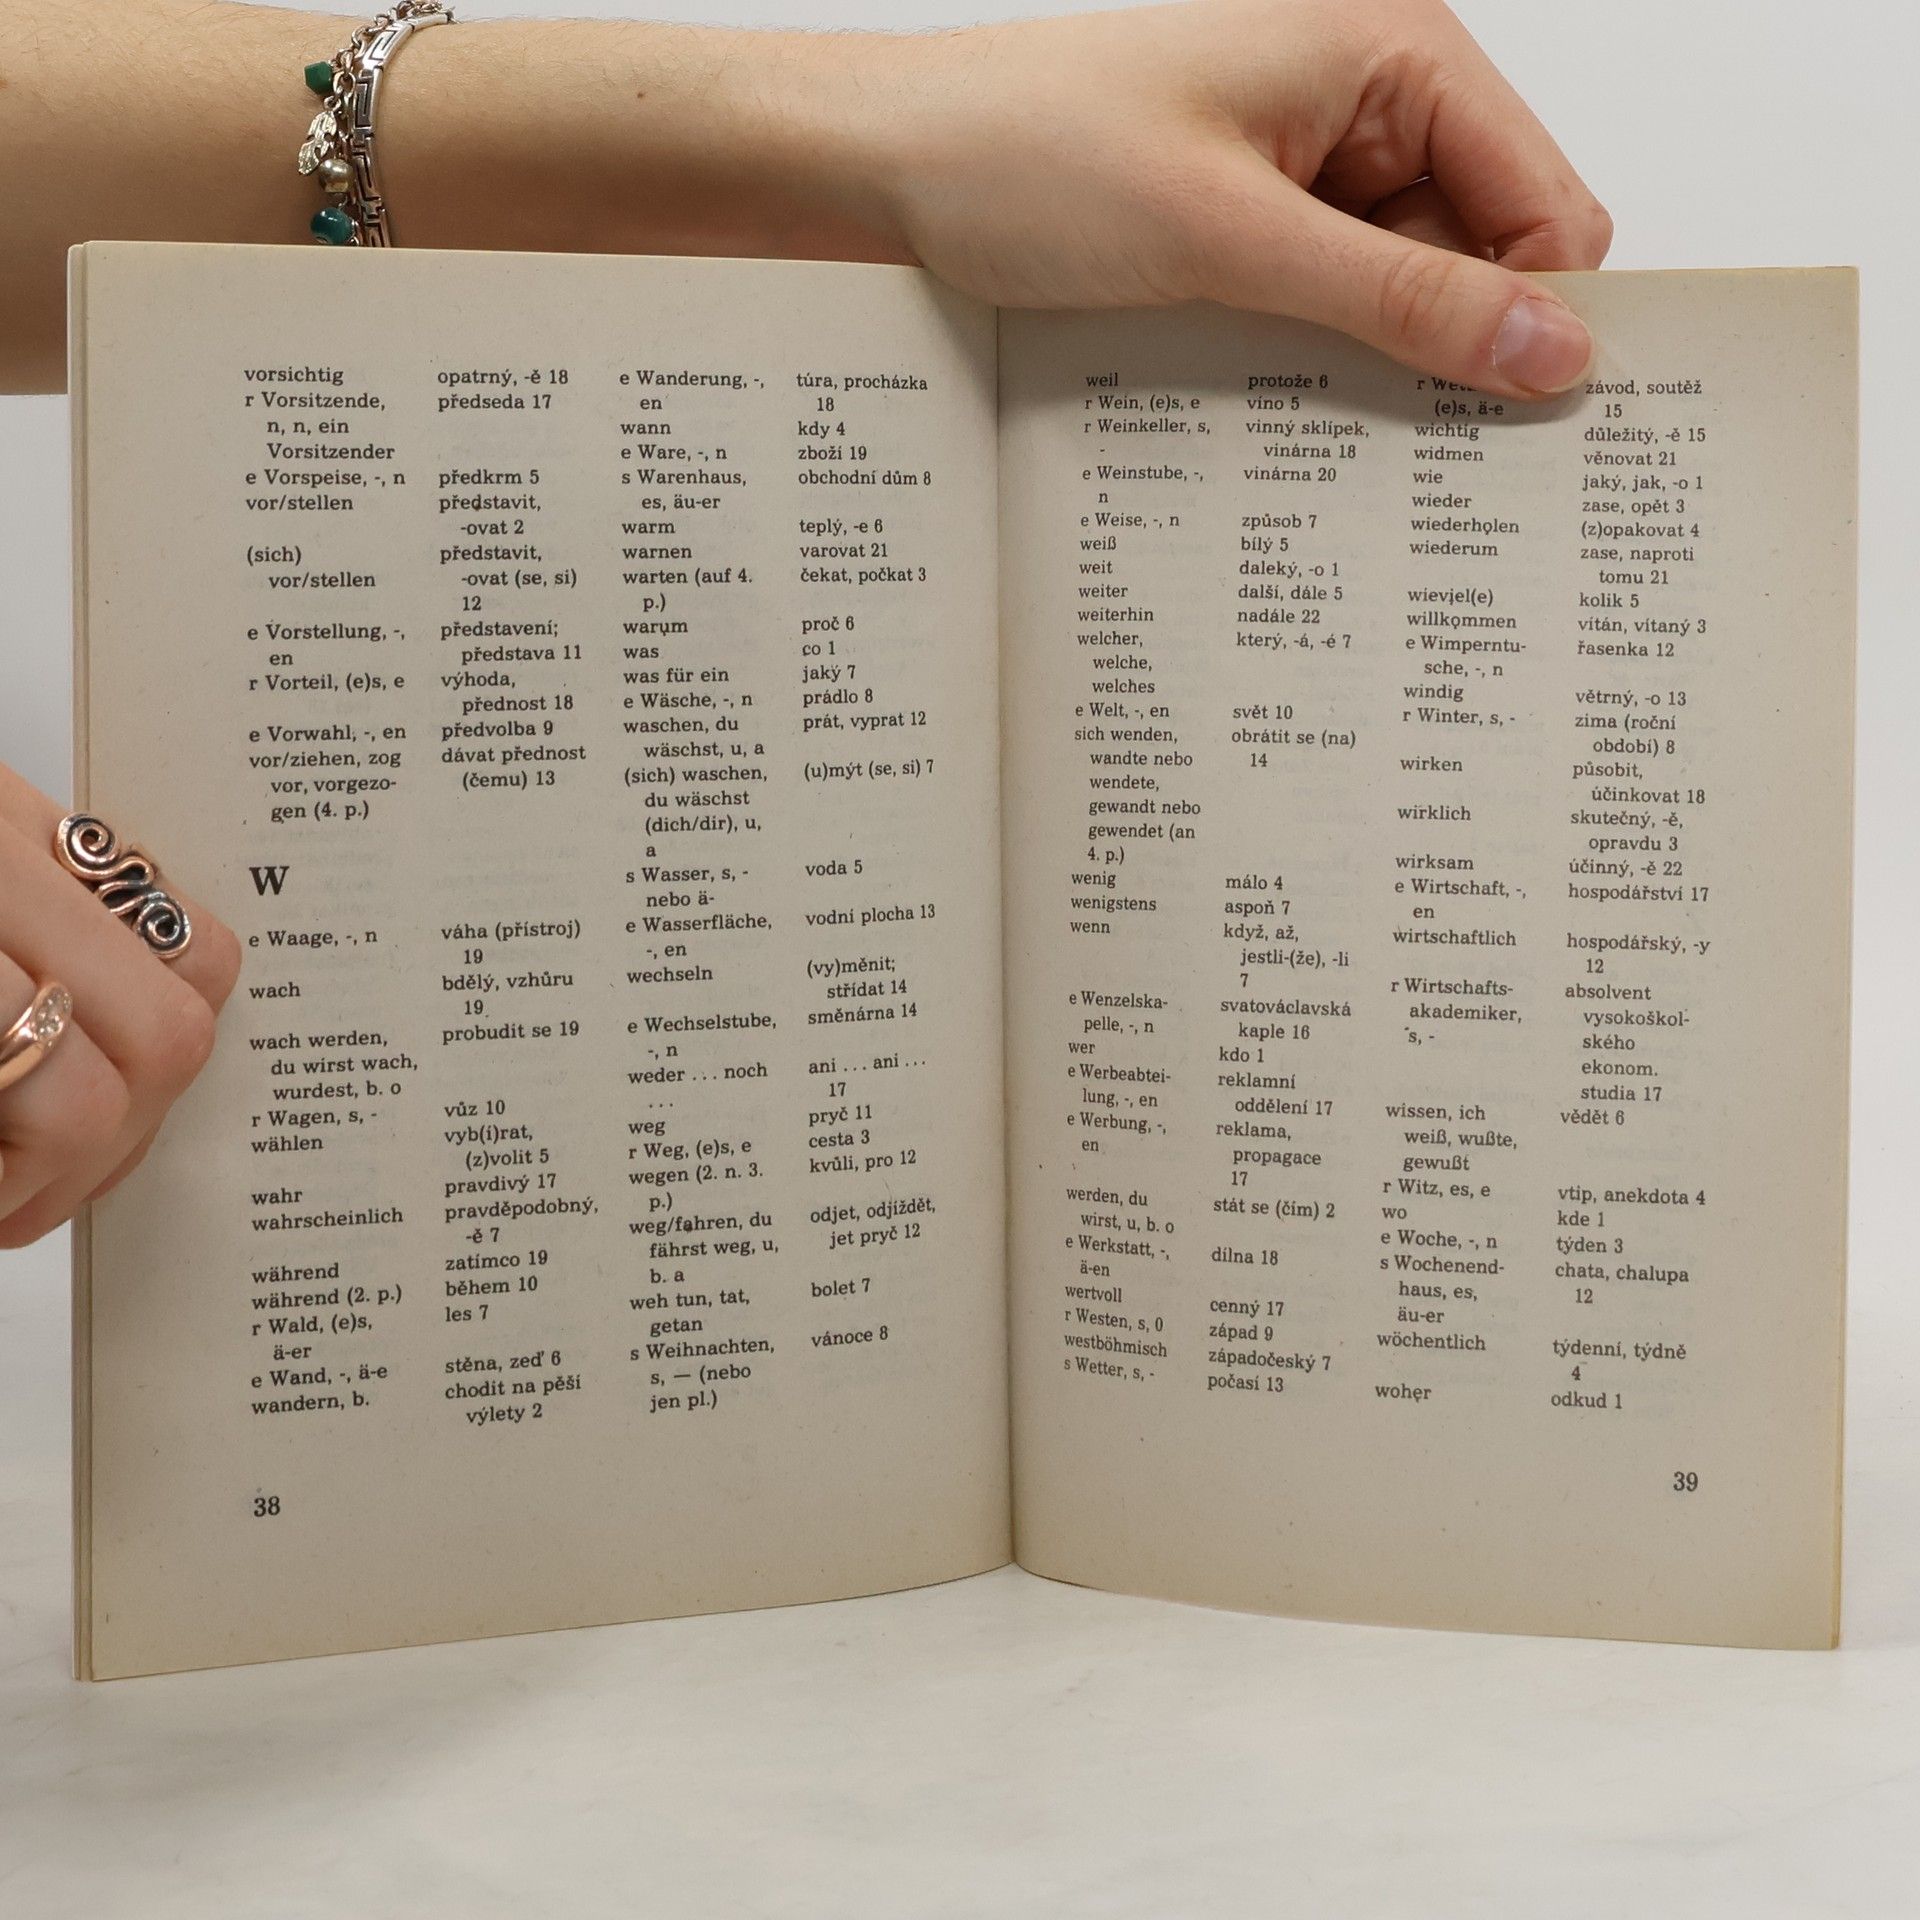 vorsichtig opatrný, -ě 18
r Vorsitzende, předseda 17
n, n, ein
Vorsitzender
e Vorspeise, -, n předkrm 5
vor/stellen představit,
-ovat 2
(sich) představit,
vor/stellen -ovat (se, si)
12
e Vorstellung, -, představení;
en představa 11
r Vorteil, (e)s, e výhoda,
přednost 18
e Vorwahl, -, en předvolba 9
vor/ziehen, zog dávat přednost
vor, vorgezo- (čemu) 13
gen (4. p.)
W
e Waage, -, n váha (přístroj)
19
wach bdělý, vzhůru
19
wach werden, probudit se 19
du wirst wach,
wurdest, b. o
r Wagen, s, - vůz 10
wählen vyb(í)rat,
(z)volit 5
wahr pravdivý 17
wahrscheinlich pravděpodobný,
-ě 7
während zatímco 19
während (2. p.) během 10
r Wald, (e)s, les 7
ä-er
e Wand, -, ä-e stěna, zeď 6
wandern, b. chodit na pěší
výlety 2
e Wanderung, -, túra, procházka
en 18
wann kdy 4
e Ware, -, n zboží 19
s Warenhaus, obchodní dům 8
es, äu-er
warm teplý, -e 6
warnen varovat 21
warten (auf 4. čekat, počkat 3
p.)
warụm proč 6
was co 1
was für ein jaký 7
e Wäsche, -, n prádlo 8
waschen, du prát, vyprat 12
wäschst, u, a
(sich) waschen, (u)mýt (se, si) 7
du wäschst
(dich/dir), u,
a
s Wasser, s, - voda 5
nebo ä-
e Wasserfläche, vodní plocha 13
-, en
wechseln (vy)měnit;
střídat 14
e Wechselstube, směnárna 14
-, n
weder ... noch ani ... ani ...
... 17
weg pryč 11
r Weg, (e)s, e cesta 3
wegen (2. n. 3. kvůli, pro 12
p.)
weg/fahren, du odjet, odjíždět,
fährst weg, u, jet pryč 12
b. a
weh tun, tat, bolet 7
getan
s Weihnachten, vánoce 8
s, — (nebo
jen pl.)
38
weil protože 6
r Wein, (e)s, e víno 5
r Weinkeller, s, vinný sklípek,
- vinárna 18
e Weinstube, -, vinárna 20
n
e Weise, -, n způsob 7
weiß bílý 5
weit daleký, -o 1
weiter další, dále 5
weiterhin nadále 22
welcher, který, -á, -é 7
welche,
welches
e Welt, -, en svět 10
sich wenden, obrátit se (na)
wandte nebo 14
wendete,
gewandt nebo
gewendet (an
4. p.)
wenig málo 4
wenigstens aspoň 7
wenn když, až,
jestli-(že), -li
7
e Wenzelska- svatováclavská
pelle, -, n kaple 16
wer kdo 1
e Werbeabtei- reklamní
lung, -, en oddělení 17
e Werbung, -, reklama,
en propagace
17
werden, du stát se (čím) 2
wirst, u, b. o
e Werkstatt, -, dílna 18
ä-en
wertvoll cenný 17
r Westen, s, 0 západ 9
westböhmisch západočeský 7
s Wetter, s, - počasí 13
r závod, soutěž
(e)s, ä-e 15
wichtig důležitý, -ě 15
widmen věnovat 21
wie jaký, jak, -o 1
wieder zase, opět 3
wiederhọlen (z)opakovat 4
wiederum zase, naproti
tomu 21
wievịel(e) kolik 5
willkọmmen vítán, vítaný 3
e Wimperntu- řasenka 12
sche, -, n
windig větrný, -o 13
r Winter, s, - zima (roční
období) 8
wirken působit,
účinkovat 18
wirklich skutečný, -ě,
opravdu 3
wirksam účinný, -ě 22
e Wirtschaft, -, hospodářství 17
en
wirtschaftlich hospodářský, -y
12
r Wirtschafts- absolvent
akademiker, vysokoškol-
s, - ského
ekonom.
studia 17
wissen, ich vědět 6
weiß, wußte,
gewußt
r Witz, es, e vtip, anekdota 4
wo kde 1
e Woche, -, n týden 3
s Wochenend- chata, chalupa
haus, es, 12
äu-er
wöchentlich týdenní, týdně
4
wohẹr odkud 1
39